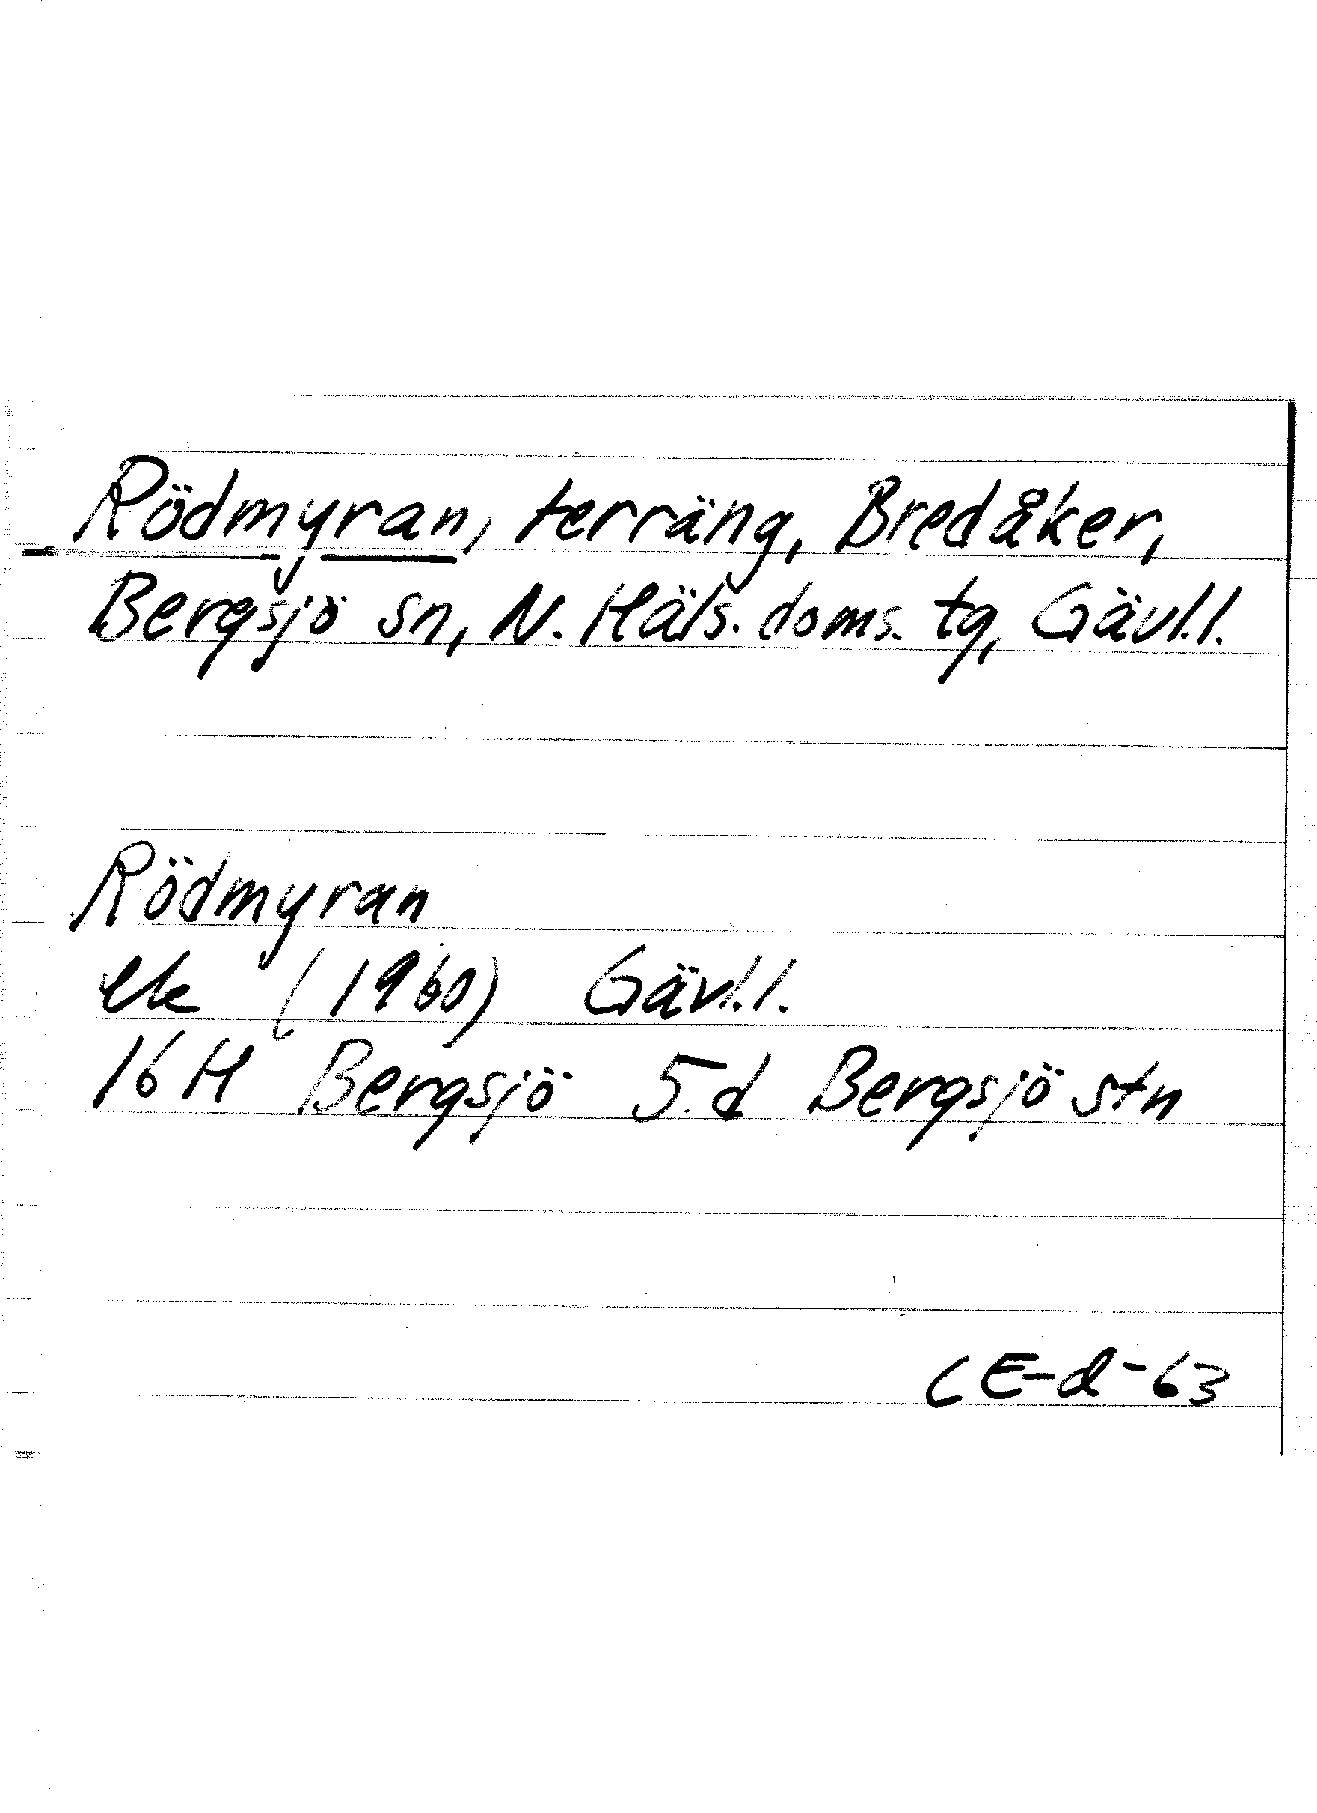 Rödmyran, terräng, Bredåker,
Bergsjö sn, N. Häls. doms. tg, Gävl.l.
Rödmyran
ek (1960) Gävl.l.
16 H Bergsjö 5.d Bergsjö stn
CE-d-63